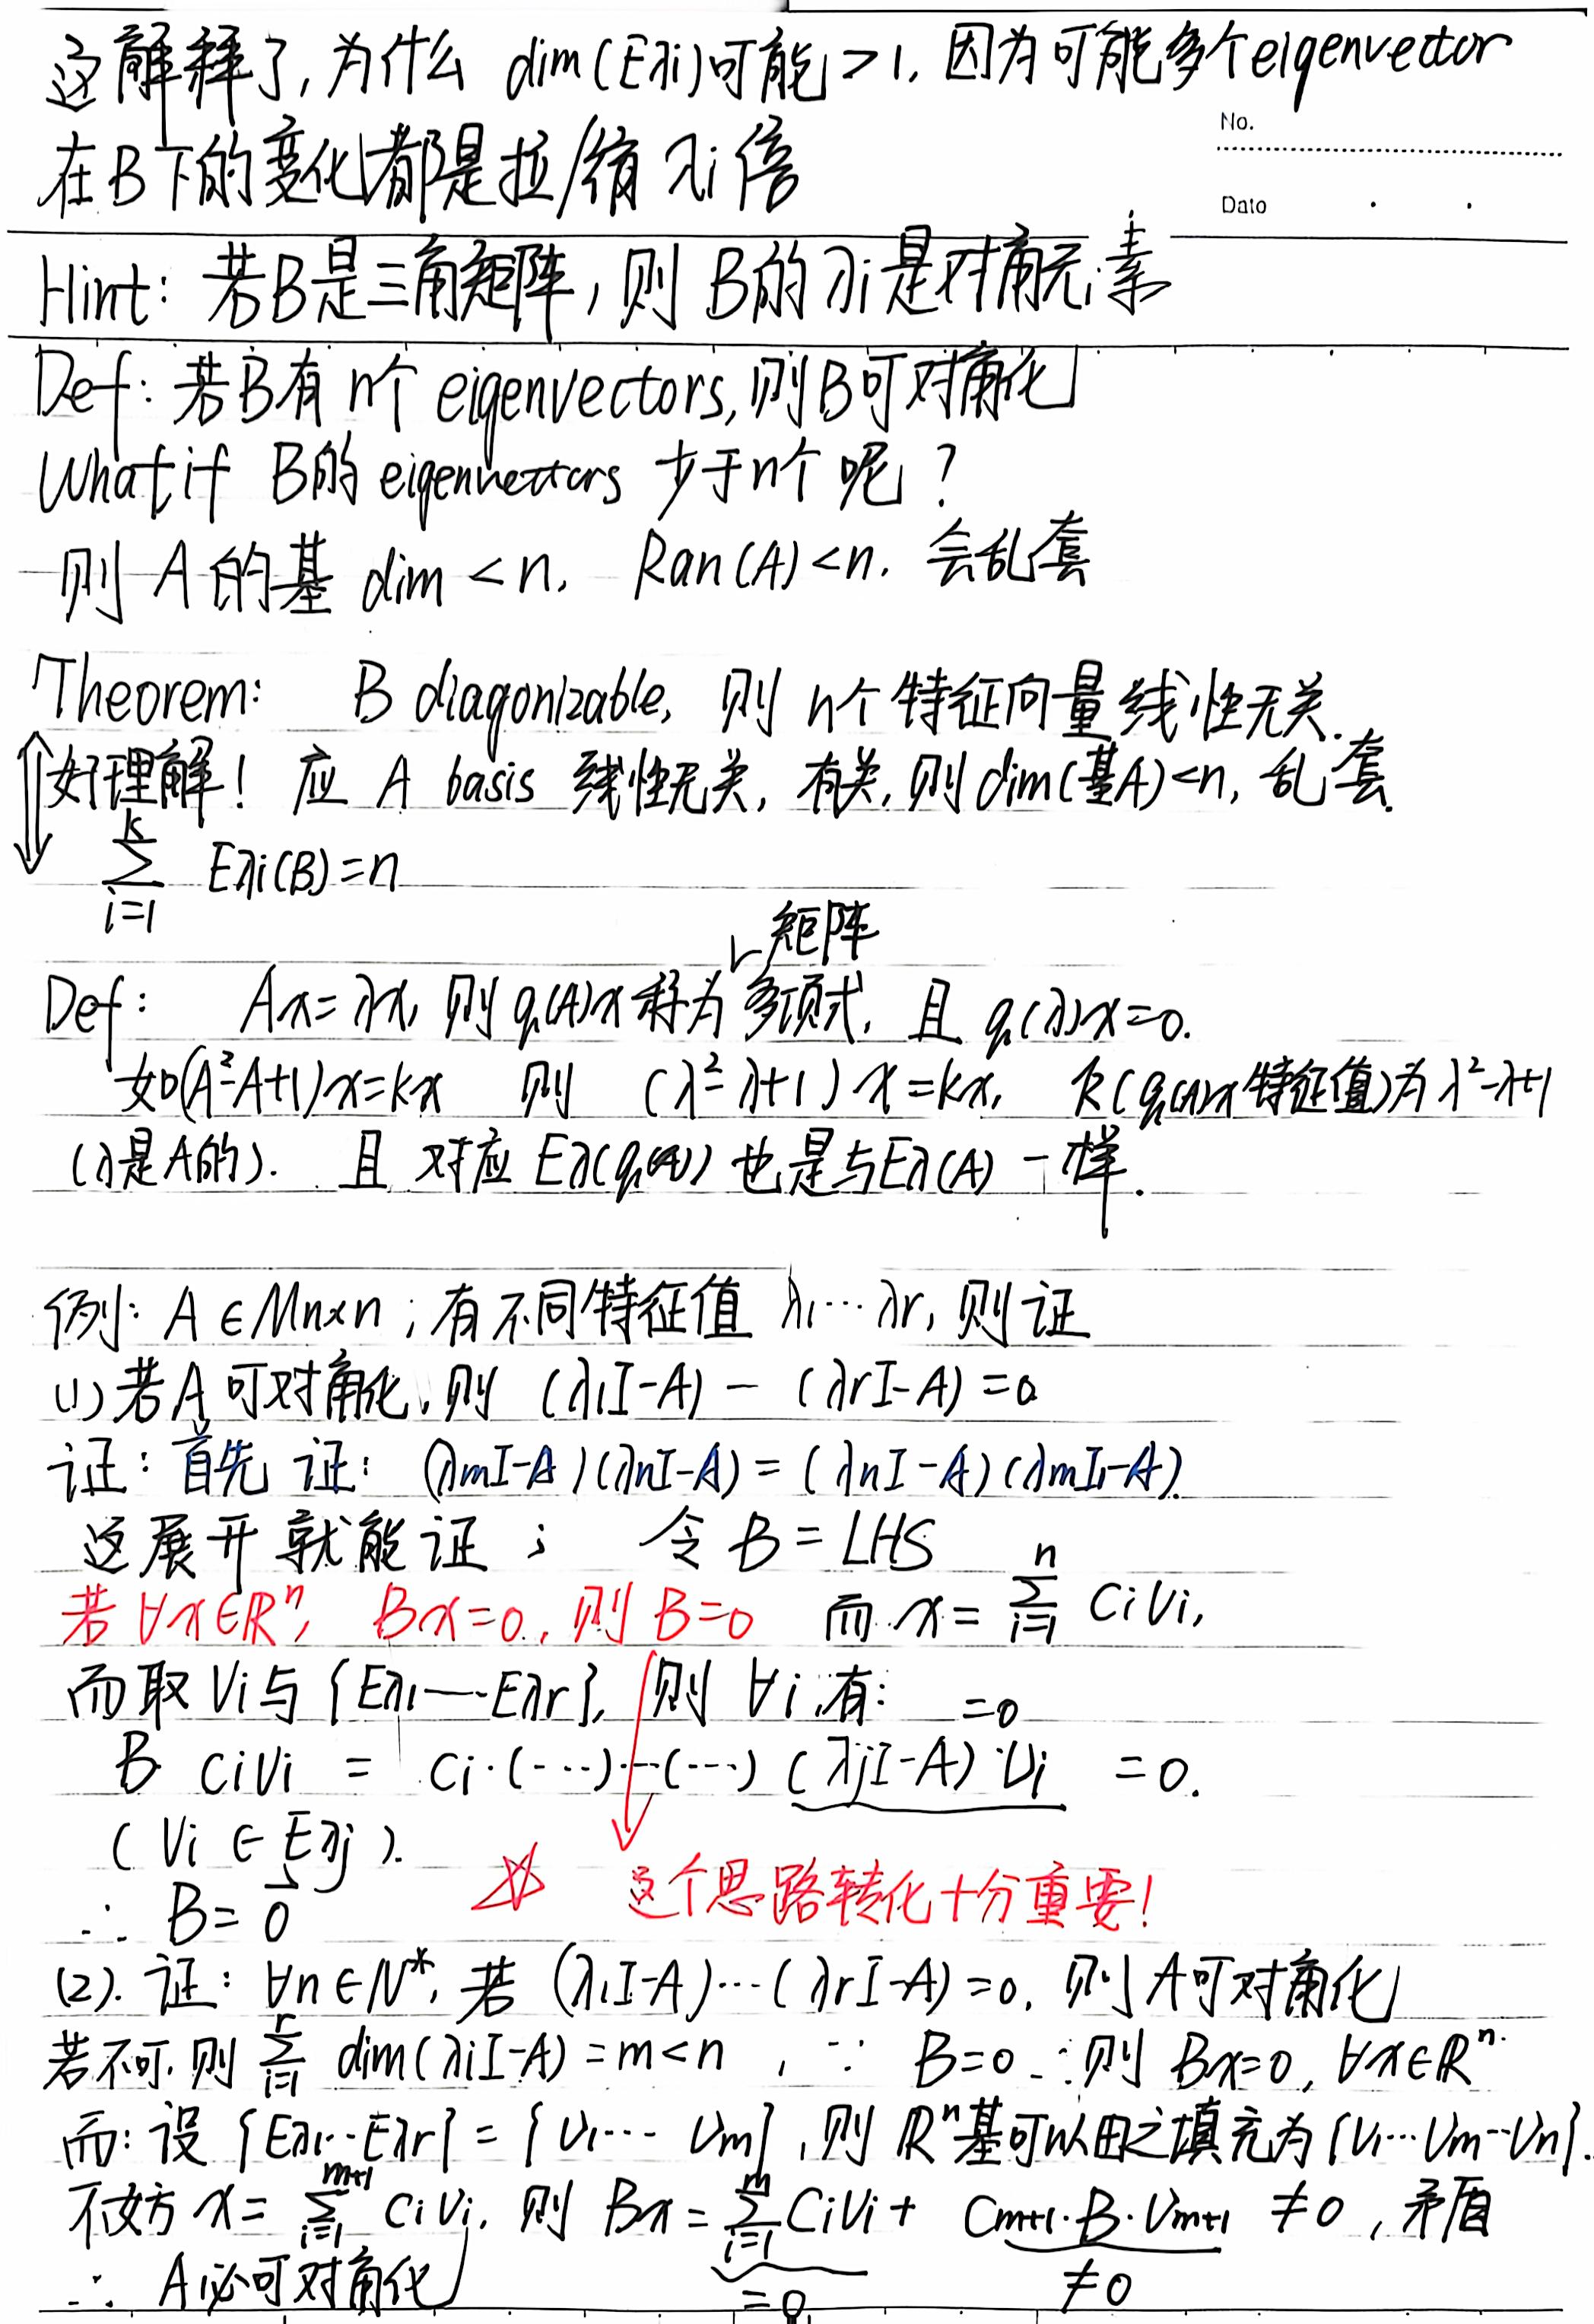 这解释了,为什么 dim(Eλi)可能>1, 因为可能多个eigenvector
No.
在B下的变化都是拉/缩 λi倍
Date
Hint: 若B是三角矩阵, 则 B的λi是对角元素
Def: 若B有n个 eigenvectors, 则B可对角化
What if B的 eigenvectors 少于n个呢?
则 A的基 dim < n, Ran(A)<n. 会乱套
Theorem: B diagonizable, 则 n个特征向量线性无关.
好理解! 应 A basis 线性无关, 有关, 则dim(基A)<n, 乱套.
k∑i=1 Eλi(B)=n
矩阵
Def: Ax=λx, 则 q(A)x 称为多项式, 且 q(λ)x=0.
如(A²-A+1)x=kx 则 (λ²-λ+1)x=kx, k(q(A)x特征值)为λ²-λ+1
(λ是A的). 且 对应 Eλ(q(A)) 也是与Eλ(A)一样.
例: A∈Mn×n; 有不同特征值 λ1…λr, 则证
(1) 若A可对角化, 则 (λ1I-A) — (λrI-A)=0
证: 首先 证: (λmI-A)(λnI-A)=(λnI-A)(λmI-A).
这展开就能证; 令 B=LHS
若∀x∈Rⁿ, Bx=0, 则 B=0 而 x= n∑i=1 CiVi,
而取Vi与{Eλ1—--Eλr}, 则 ∀i有: =0
B CiVi = Ci·(----)·--(---)(λjI-A)·Vi =0.
(Vi∈Eλj).
☆ 这个思路转化十分重要!
∴ B=0
(2). 证: ∀n∈N*, 若 (λ1I-A)…(λrI-A)=0, 则A可对角化
若不可, 则 r∑i=1 dim(λiI-A)=m<n, ∵ B=0 ∴则 Bx=0, ∀x∈Rⁿ.
而: 设 {Eλ1…Eλr}={V1---Vm}, 则 Rⁿ基可以由之填充为{V1…Vm--Vn}.
不妨 x= m+1∑i=1 CiVi, 则 Bx= m∑i=1 CiVi + Cm+1·B·Vm+1 ≠0, 矛盾
∴ A必可对角化 =0 ≠0